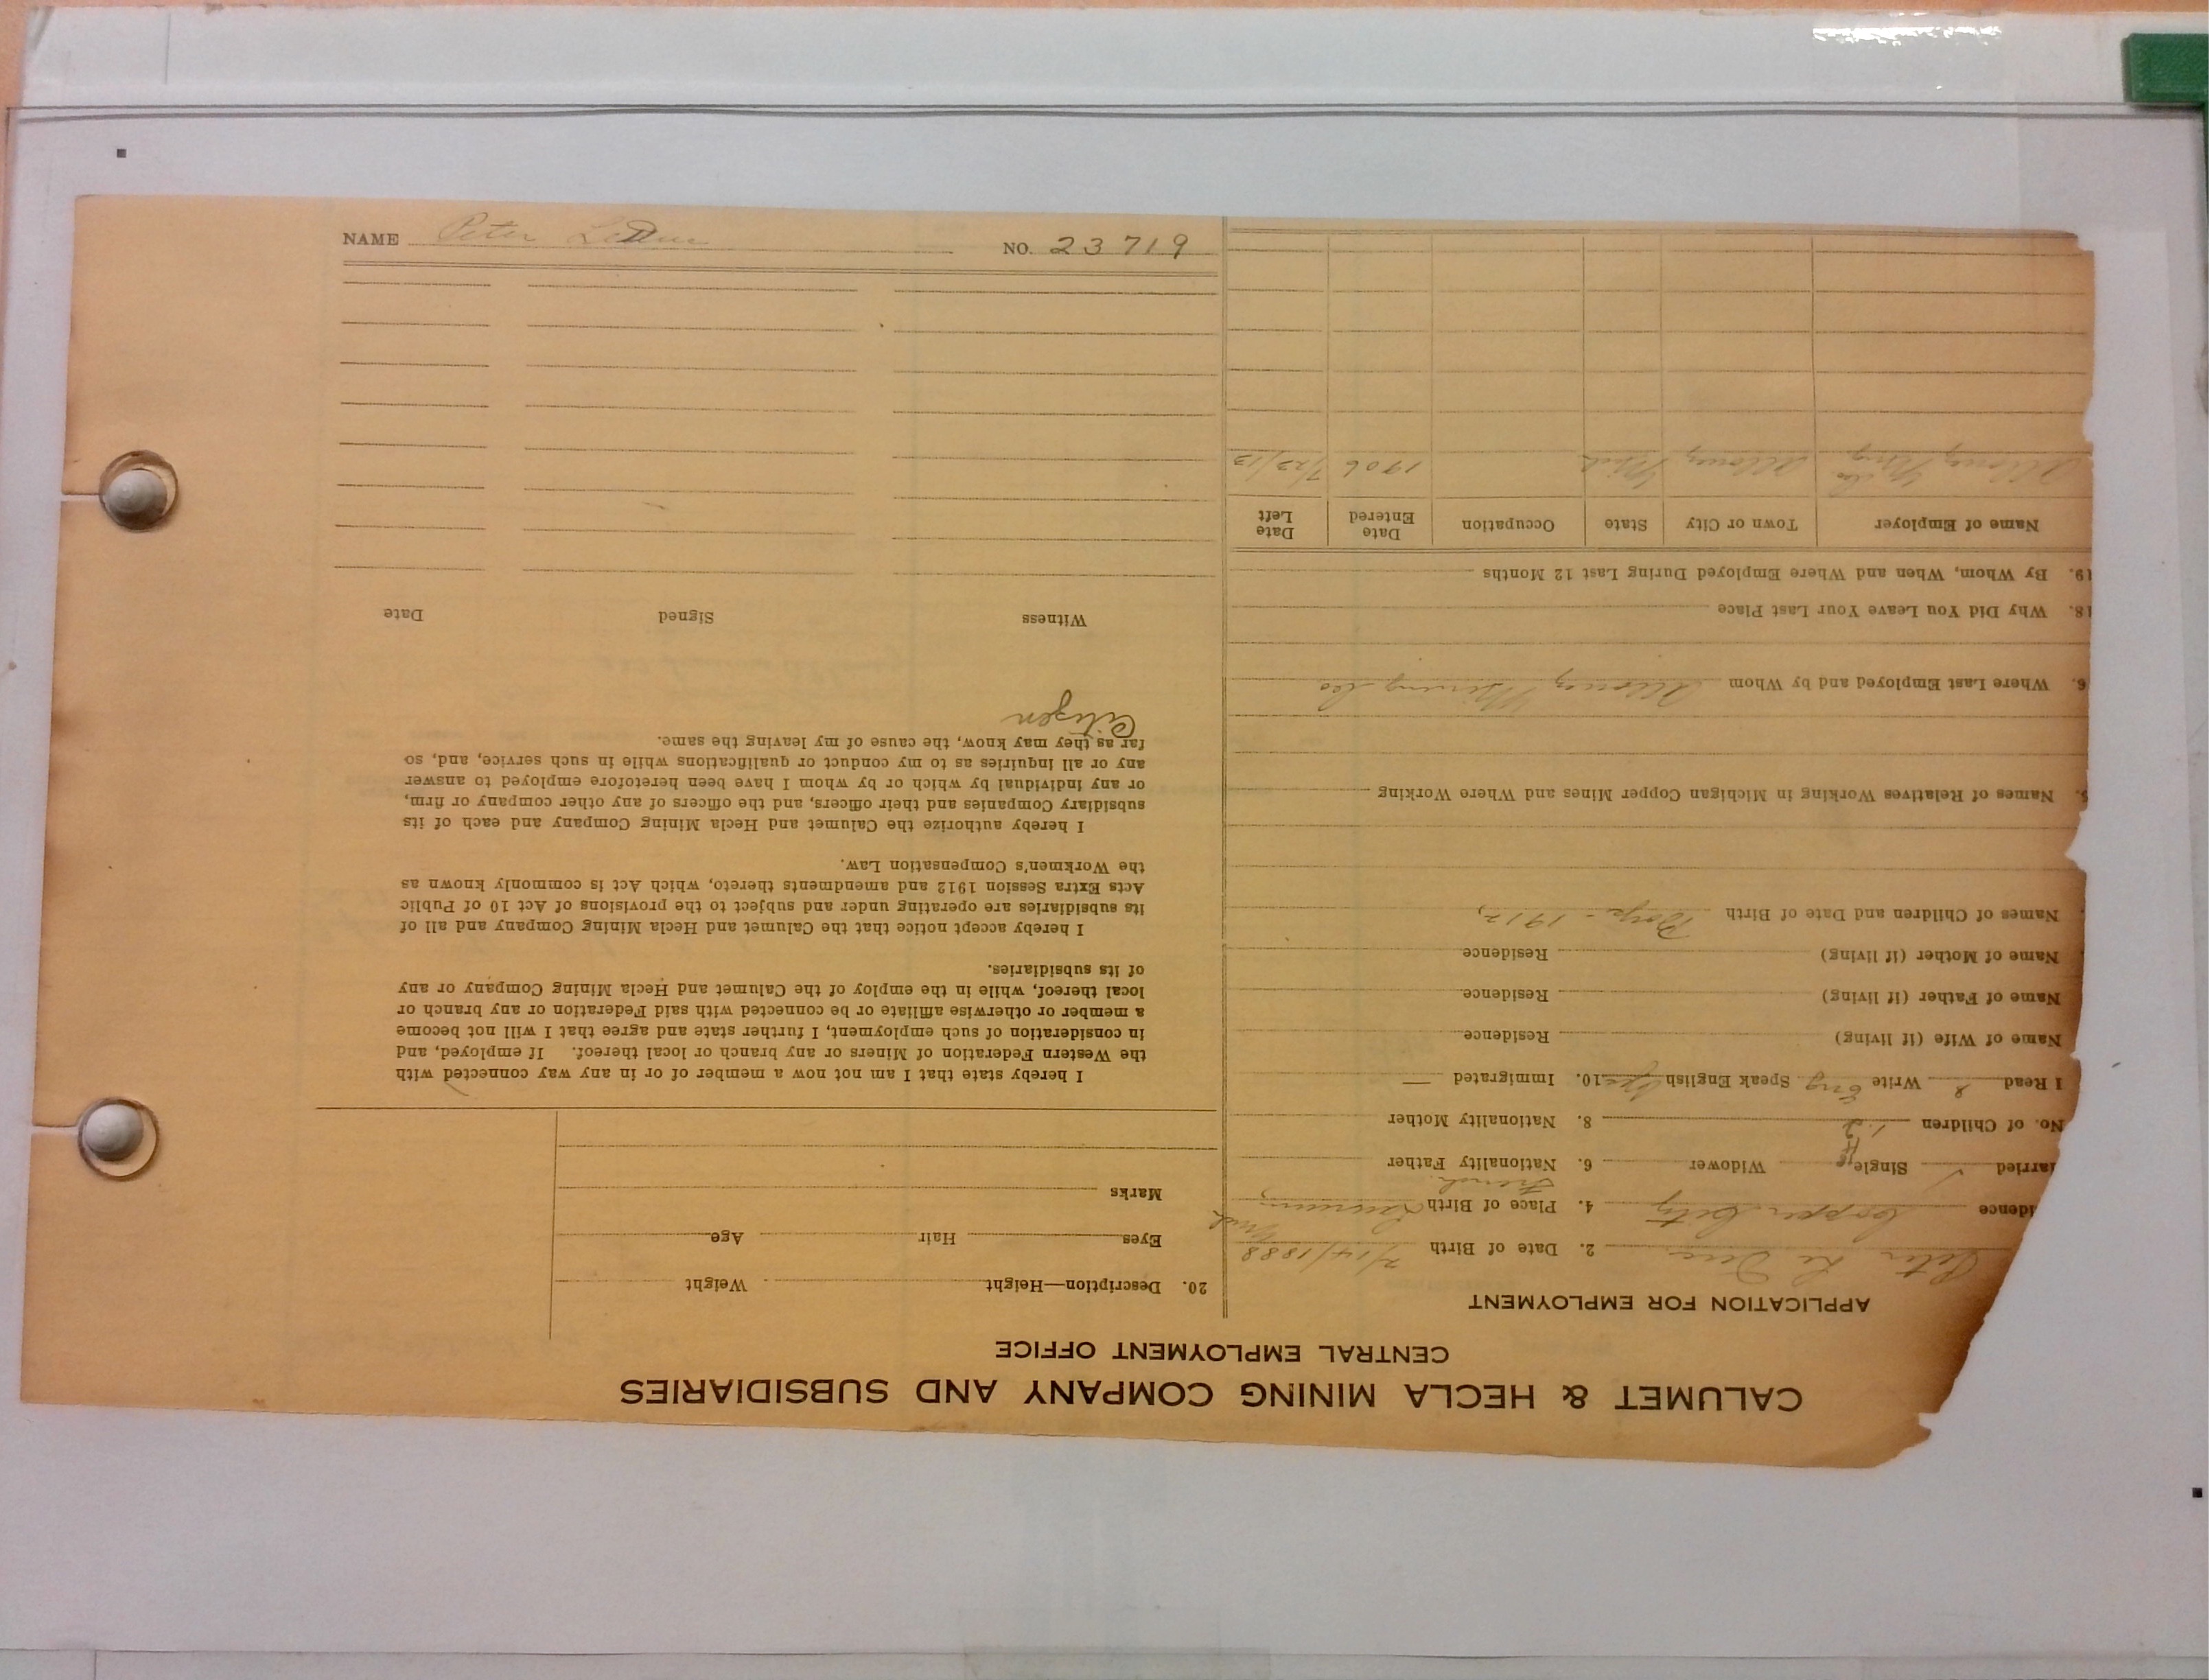 CALUMET & HECLA MINING COMPANY AND SUBSIDIARIES
CENTRAL EMPLOYMENT OFFICE
APPLICATION FOR EMPLOYMENT
Peter Le Duc 2. Date of Birth 7/14/1888
idence Copper City 4. Place of Birth Laurium, Mich
arried ✓ Single Widower 6. Nationality Father French
No. of Children 8. Nationality Mother
I Read & Write Eng Speak English yes 10. Immigrated —
Name of Wife (if living) Residence
Name of Father (if living) Residence
Name of Mother (if living) Residence
Names of Children and Date of Birth Boys - 1912,
5. Names of Relatives Working in Michigan Copper Mines and Where Working
6. Where Last Employed and by Whom Allouez Mining Co
18. Why Did You Leave Your Last Place
19. By Whom, When and Where Employed During Last 12 Months
Name of Employer Town or City State Occupation Date Entered Date Left
Allouez Mng Co Allouez Mich 1906 7/22/13
20. Description—Height Weight
Eyes Hair Age
Marks
I hereby state that I am not now a member of or in any way connected with
the Western Federation of Miners or any branch or local thereof. If employed, and
in consideration of such employment, I further state and agree that I will not become
a member or otherwise affiliate or be connected with said Federation or any branch or
local thereof, while in the employ of the Calumet and Hecla Mining Company or any
of its subsidiaries.
I hereby accept notice that the Calumet and Hecla Mining Company and all of
its subsidiaries are operating under and subject to the provisions of Act 10 of Public
Acts Extra Session 1912 and amendments thereto, which Act is commonly known as
the Workmen's Compensation Law.
I hereby authorize the Calumet and Hecla Mining Company and each of its
subsidiary Companies and their officers, and the officers of any other company or firm,
or any individual by which or by whom I have been heretofore employed to answer
any or all inquiries as to my conduct or qualifications while in such service, and, so
far as they may know, the cause of my leaving the same.
Citizen
Witness Signed Date
NAME Peter LeDuc NO. 23719